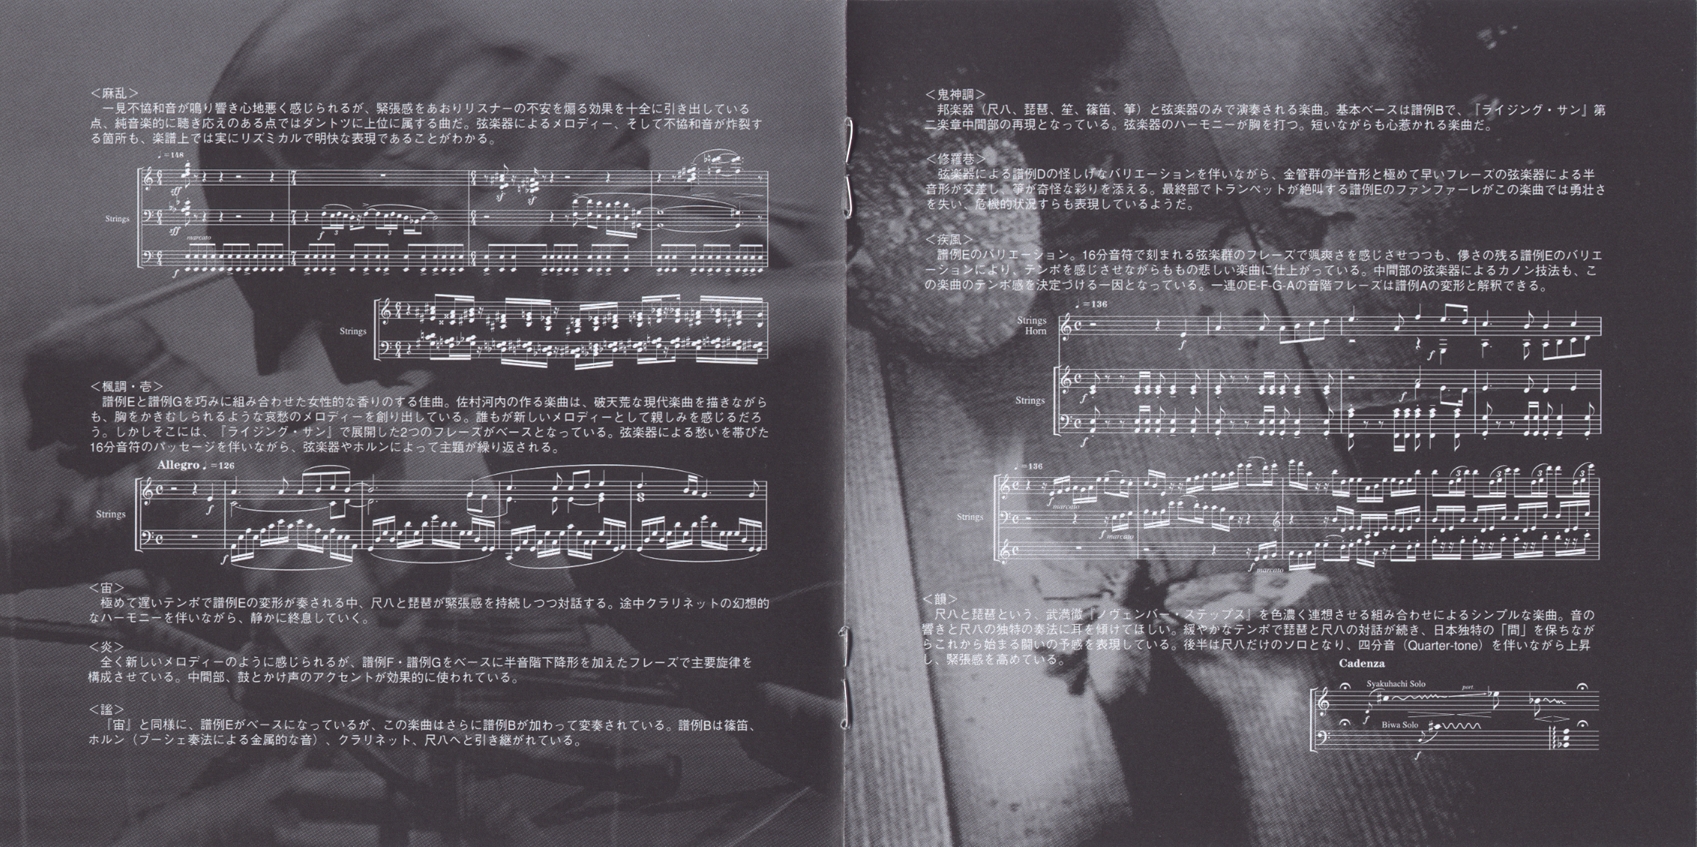 ＜麻乱＞
一見不協和音が鳴り響き心地悪く感じられるが、緊張感をあおりリスナーの不安を煽る効果を十全に引き出している
点、純音楽的に聴き応えのある点ではダントツに上位に属する曲だ。弦楽器によるメロディー、そして不協和音が炸裂す
る箇所も、楽譜上では実にリズミカルで明快な表現であることがわかる。
♩=148
Strings
marcato
Strings
＜楓調・壱＞
譜例Eと譜例Gを巧みに組み合わせた女性的な香りのする佳曲。佐村河内の作る楽曲は、破天荒な現代楽曲を描きながら
も、胸をかきむしられるような哀愁のメロディーを創り出している。誰もが新しいメロディーとして親しみを感じるだろ
う。しかしそこには、『ライジング・サン』で展開した2つのフレーズがベースとなっている。弦楽器による愁いを帯びた
16分音符のパッセージを伴いながら、弦楽器やホルンによって主題が繰り返される。
Allegro ♩=126
Strings
＜宙＞
極めて遅いテンポで譜例Eの変形が奏される中、尺八と琵琶が緊張感を持続しつつ対話する。途中クラリネットの幻想的
なハーモニーを伴いながら、静かに終息していく。
＜炎＞
全く新しいメロディーのように感じられるが、譜例F・譜例Gをベースに半音階下降形を加えたフレーズで主要旋律を
構成させている。中間部、鼓とかけ声のアクセントが効果的に使われている。
＜謐＞
『宙』と同様に、譜例Eがベースになっているが、この楽曲はさらに譜例Bが加わって変奏されている。譜例Bは篠笛、
ホルン（ブーシェ奏法による金属的な音）、クラリネット、尺八へと引き継がれている。
＜鬼神調＞
邦楽器（尺八、琵琶、笙、篠笛、箏）と弦楽器のみで演奏される楽曲。基本ベースは譜例Bで、『ライジング・サン』第
二楽章中間部の再現となっている。弦楽器のハーモニーが胸を打つ。短いながらも心惹かれる楽曲だ。
＜修羅巷＞
弦楽器による譜例Dの怪しげなバリエーションを伴いながら、金管群の半音形と極めて早いフレーズの弦楽器による半
音形が交差し、箏が奇怪な彩りを添える。最終部でトランペットが絶叫する譜例Eのファンファーレがこの楽曲では勇壮さ
を失い、危機的状況すらも表現しているようだ。
＜疾風＞
譜例Eのバリエーション。16分音符で刻まれる弦楽群のフレーズで颯爽さを感じさせつつも、儚さの残る譜例Eのバリエ
ーションにより、テンポを感じさせながらももの悲しい楽曲に仕上がっている。中間部の弦楽器によるカノン技法も、こ
の楽曲のテンポ感を決定づける一因となっている。一連のE-F-G-Aの音階フレーズは譜例Aの変形と解釈できる。
♩=136
Strings
Horn
Strings
♩=136
Strings
marcato
marcato
marcato
＜韻＞
尺八と琵琶という、武満徹『ノヴェンバー・ステップス』を色濃く連想させる組み合わせによるシンプルな楽曲。音の
響きと尺八の独特の奏法に耳を傾けてほしい。緩やかなテンポで琵琶と尺八の対話が続き、日本独特の「間」を保ちなが
らこれから始まる闘いの予感を表現している。後半は尺八だけのソロとなり、四分音（Quarter-tone）を伴いながら上昇
し、緊張感を高めている。
Cadenza
Syakuhachi Solo
port.
Biwa Solo